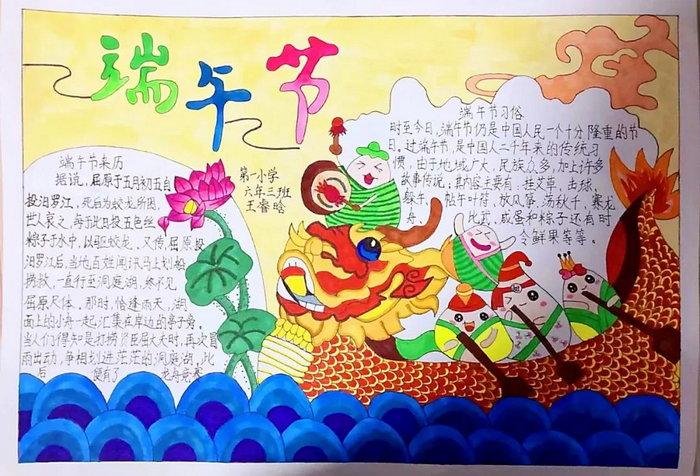 端午节
端午节来历
据说,屈原于五月初五自
投汨罗江,死后为蛟龙所困,
世人哀之,每于此日投五色丝
粽子于水中,以驱蛟龙,又传,屈原投
汨罗江后,当地百姓闻讯马上划船
捞救,一直行至洞庭湖,终不见
屈原尸体。那时,恰逢雨天,湖
面上的小舟一起汇集在岸边的亭子旁。
当人们得知是打捞贤臣屈大夫时,再次冒
雨出动,争相划进茫茫的洞庭湖,此
后 便有了 龙舟竞赛
第一小学
六年三班
王睿晗
端午节习俗
时至今日,端午节仍是中国人民一个十分隆重的节
日,过端午节,是中国人二千年来的传统习
惯,由于地域广大,民族众多,加上许多
故事传说,其内容主要有:挂艾草,击球,
躲午,贴午叶符,放风筝,荡秋千,赛龙
舟,比武,咸蛋和粽子还有时
令鲜果等等。